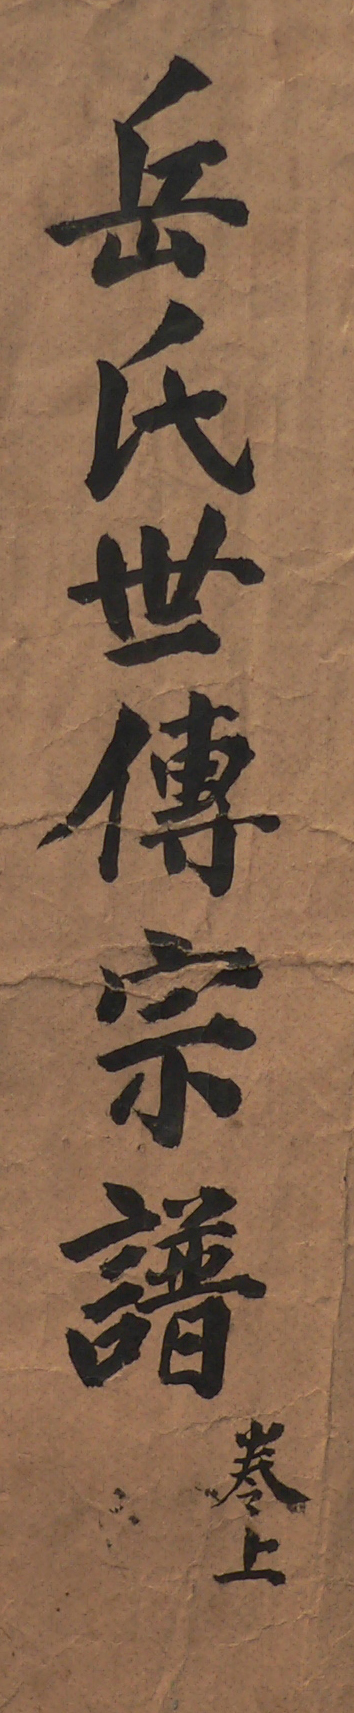 岳氏世傳宗譜
卷上